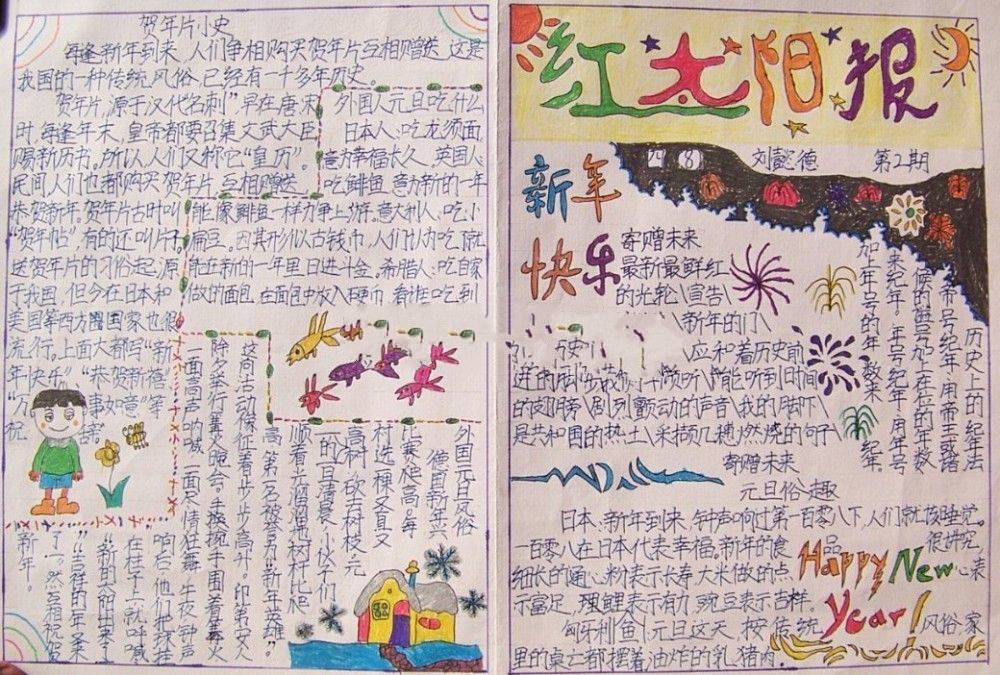 贺年片小史
每逢新年到来,人们争相购买贺年片互相赠送,这是
我国的一种传统风俗,已经有一千多年历史。
贺年片,源于汉代名刺”早在唐宋
时,每逢年末,皇帝都要召集文武大臣
赐新历书。所以人们又称它“皇历”。
民间人们也都购买贺年片,互相赠送
恭贺新年。贺年片古时叫
“贺年帖”,有的还叫片子。
送贺年片的习俗起源
于我国,但今在日本和
美国等西方国家也很
流行。上面大都写“新
年快乐”“恭贺新禧”
事如意”等
外国人元旦吃什么
日本人:吃龙须面,
意为幸福长久。英国人:
吃鲱鱼,意为新的一年
能像鲱鱼一样力争上游。意大利人:吃小
扁豆。因其形似古钱币,人们认为吃了就
能在新的一年里日进斗金。希腊人:吃自家
做的面包,在面包中放入硬币,看谁吃到
外国元旦风俗
德国新年兴
比赛爬高。每
村选一棵又直又
高的树,砍去树枝,元
旦清晨,小伙子们
顺着光溜溜的树杆比爬
高,第一名被誉为“新年英雄”
这项活动象征着步步高升。印第安人
除夕举行篝火晚会。手挽手围着篝火
一面高声呐喊,一面尽情狂舞。午夜钟声
响后,他们把球挂
在柱子上,就呼喊
“新的太阳出来了”
“吉祥的一年又来
了”。然后互相祝贺
新年。
红太阳报
29 8
刘懿德
第2期
新年
快乐
寄赠未来
最新最鲜红
的光轮\宣告\
\新年的门\
\应和着历史前
进的
\能听到旧时间
的
剧烈颤动的声音\我的脚下\
是共和国的热土\采撷几穗\燃烧的句子
寄赠未来
历史上的纪年法
帝号纪年:用帝王或诸
侯的谥号加上在位的年数
来纪年。年号纪年:用年号
加上年号的年数来
纪年
元旦俗趣
日本:新年到来,钟声响过第一百零八下,人们就该睡觉。
一百零八在日本代表幸福。新年的食品很讲究
细长的通心粉表示长寿,大米做的点心表
示富足,理鲤表示有力,豌豆表示吉祥。
Happy New
Year!
匈牙利鱼\元旦这天,按传统风俗,家
里的桌上都摆着油炸的乳猪肉。